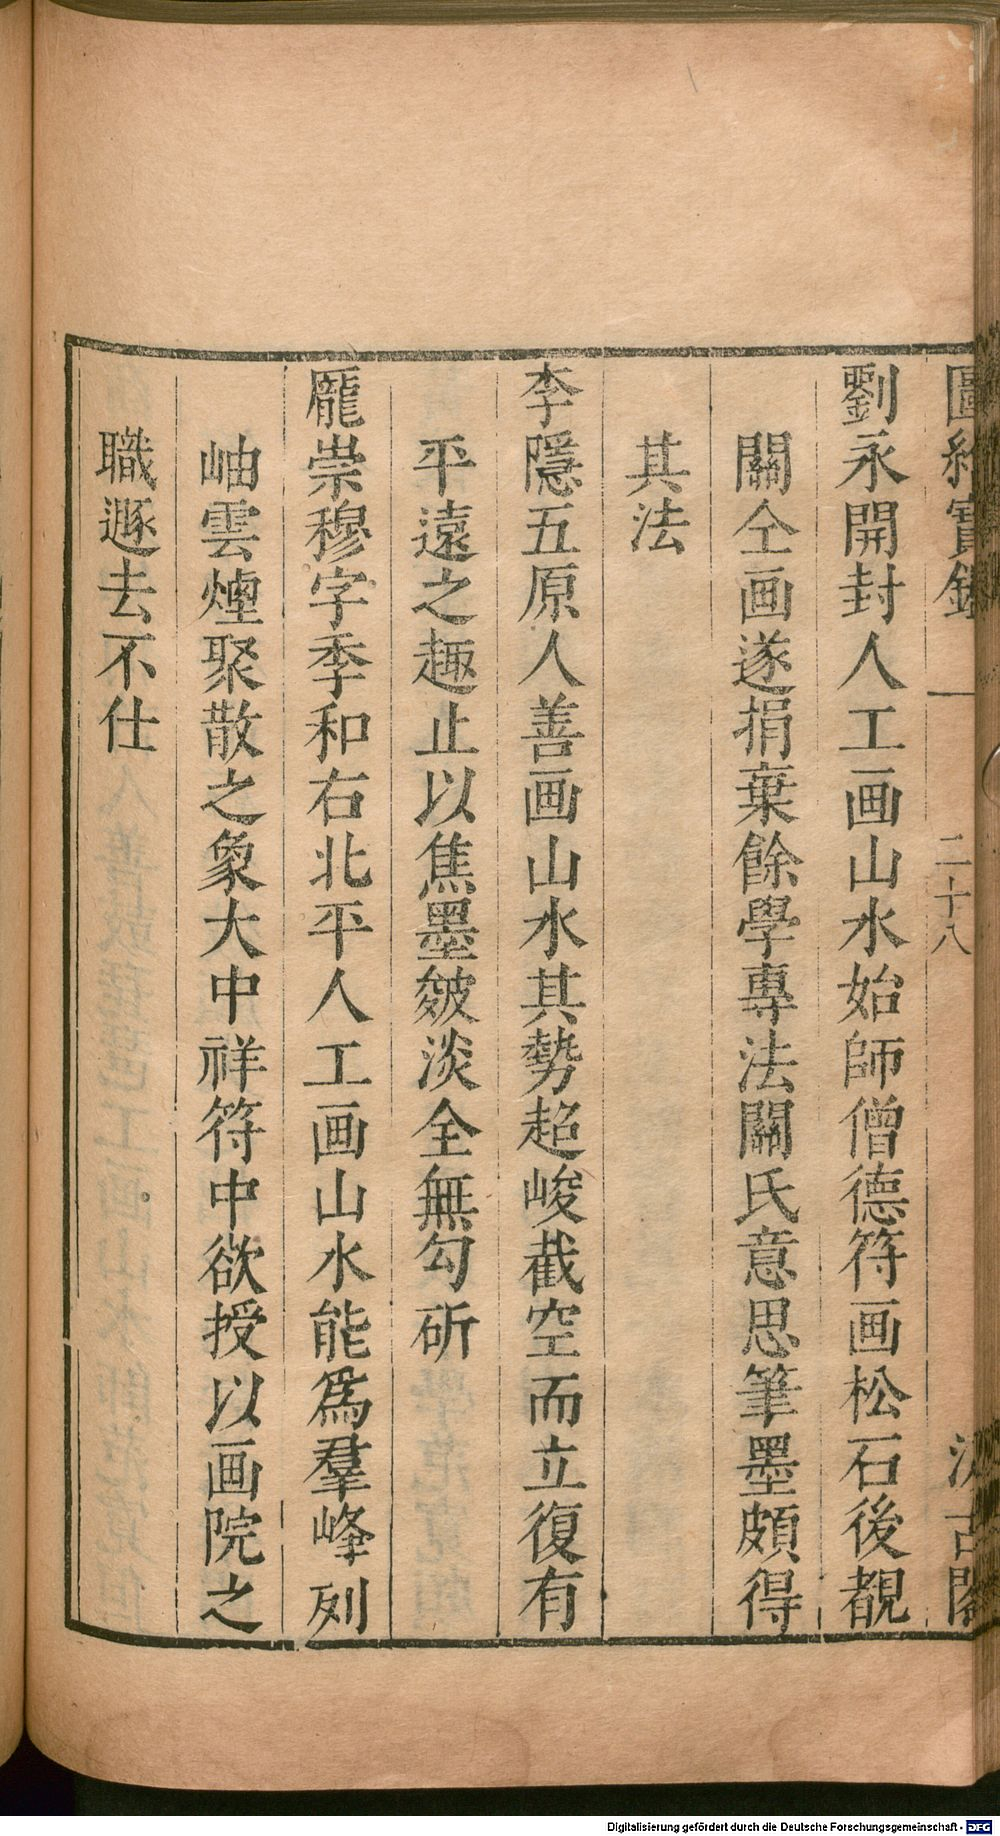 圖繪寶鑑 二十八 汲古閣
劉永開封人工画山水始師僧德符画松石後覩
關仝画遂捐棄餘學專法關氏意思筆墨頗得
其法
李隱五原人善画山水其勢超峻截空而立復有
平遠之趣止以焦墨皴淡全無勾斫
龎崇穆字季和右北平人工画山水能爲羣峰列
岫雲煙聚散之象大中祥符中欲授以画院之
職遯去不仕
Digitalisierung gefördert durch die Deutsche Forschungsgemeinschaft - DFG